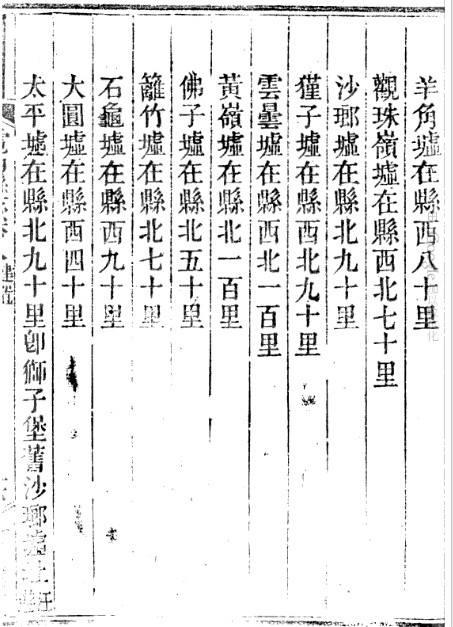 羊角墟在縣西八十里
觀珠嶺墟在縣西北七十里
沙瑯墟在縣北九十里
獞子墟在縣西北九十里
雲曇墟在縣西北一百里
黃嶺墟在縣北一百里
佛子墟在縣北五十里
籬竹墟在縣北七十里
石龜墟在縣西九十里
大圓墟在縣西四十里
太平墟在縣北九十里卽獅子堡舊沙瑯墟